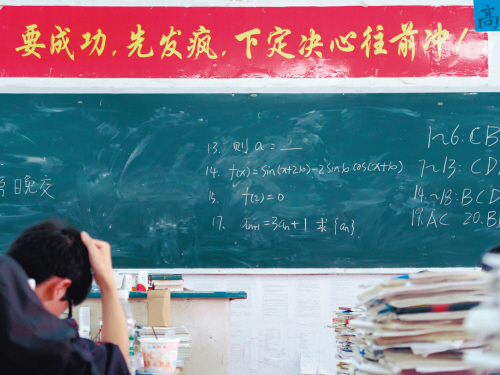 要成功，先发疯，下定决心往前冲！
高
13. 则 a = __
14. f(x)=sin(x+2φ)-2sinφcos(x+φ)
15. f(2)=0
17. an+1=3an+1 求{an}
日晚交
1~6. CB
7~13: CD
14~18: BCD
19. AC 20. B